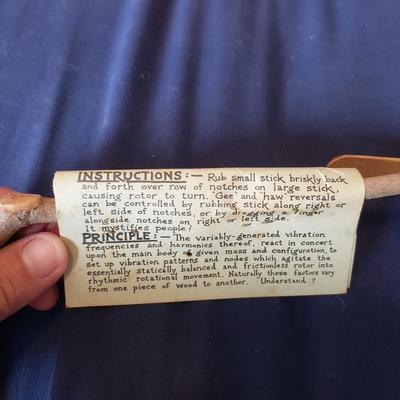 INSTRUCTIONS:— Rub small stick briskly back
and forth over row of notches on large stick,
causing rotor to turn. "Gee and haw" reversals
can be controlled by rubbing stick along right or
left side of notches, or by dragging a finger
alongside notches on right or left side.
It mystifies people!
PRINCIPLE:— The variably-generated vibration
frequencies and harmonics thereof, react in concert
upon the main body of given mass and configuration, to
set up vibration patterns and nodes which agitate the
essentially statically balanced and frictionless rotor into
rhythmic rotational movement. Naturally these factors vary
from one piece of wood to another. Understand?